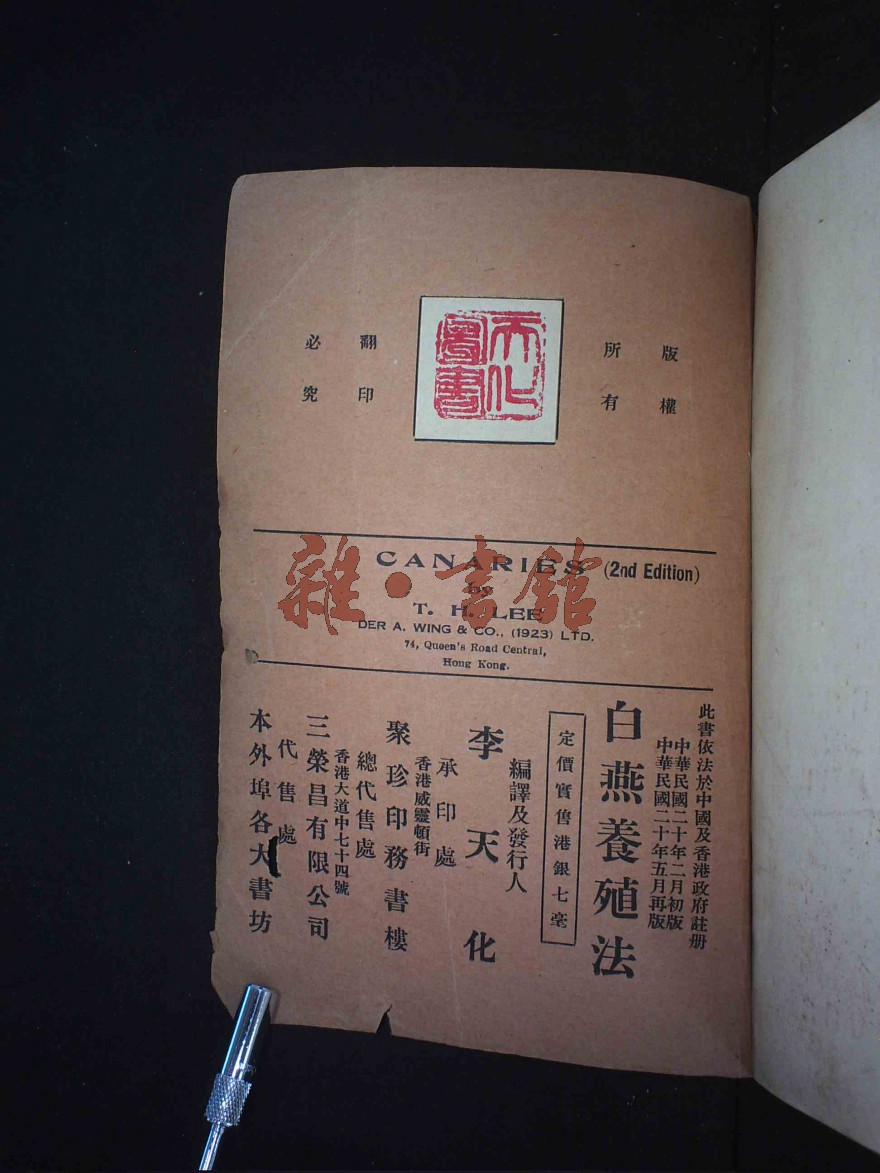 版權
所有
天化
圖書
翻印
必究
CANARIES (2nd Edition)
by
T. H. LEE
DER A. WING & CO., (1923) LTD.
74, Queen's Road Central,
Hong Kong.
雜·書館
此書依法於中國及香港政府註册
中華民國二十年二月初版
中華民國二十年五月再版
白燕養殖法
定價實售港銀七毫
編譯及發行人
李天化
承印處
香港威靈頓街
聚珍印務書樓
總代售處
香港大道中七十四號
三榮昌有限公司
代售處
本外埠各大書坊